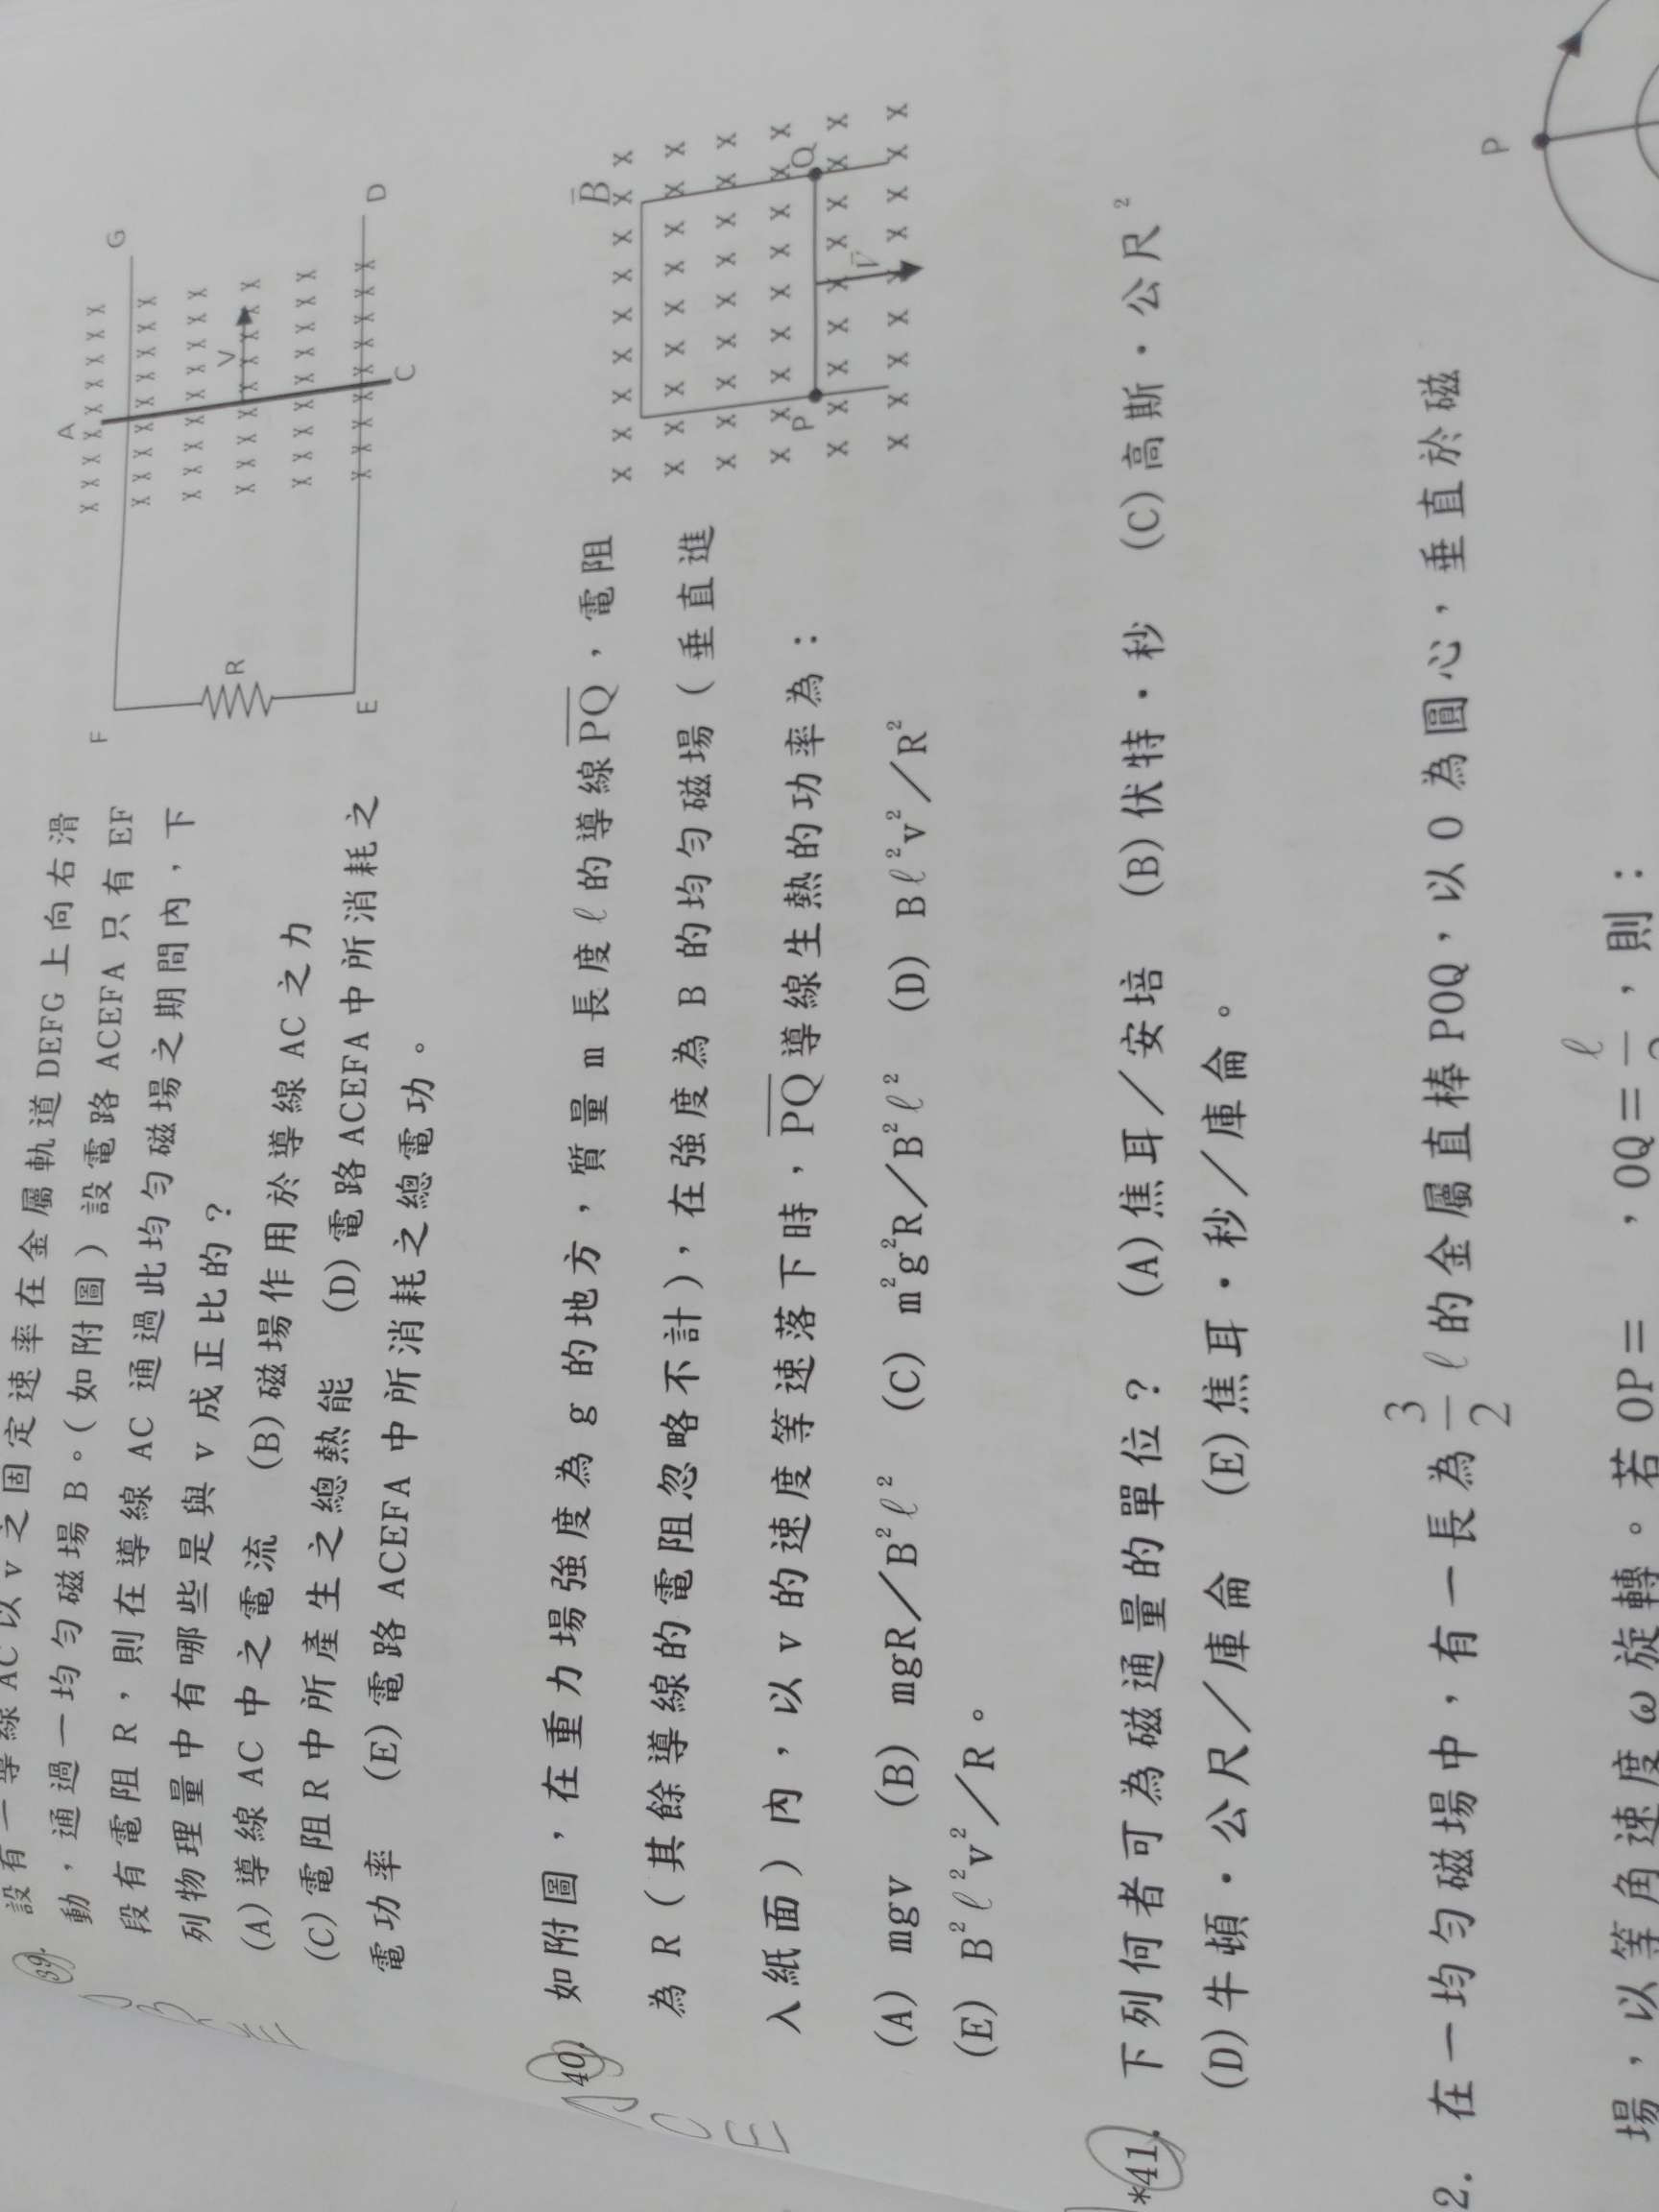 39.
設有一導線AC以v之固定速率在金屬軌道DEFG上向右滑
動，通過一均勻磁場B。（如附圖）設電路ACEFA只有EF
段有電阻R，則在導線AC通過此均勻磁場之期間內，下
列物理量中有哪些是與v成正比的？
(A)導線AC中之電流 (B)磁場作用於導線AC之力
(C)電阻R中所產生之總熱能 (D)電路ACEFA中所消耗之
電功率 (E)電路ACEFA中所消耗之總電功。
A
G
V
C
D
F
R
E
40. 如附圖，在重力場強度為g的地方，質量m長度ℓ的導線PQ，電阻
為R（其餘導線的電阻忽略不計），在強度為B的均勻磁場（垂直進
入紙面）內，以v的速度等速落下時，PQ導線生熱的功率為：
(A) mgv (B) mgR／B²ℓ² (C) m²g²R／B²ℓ² (D) Bℓ²v²／R²
(E) B²ℓ²v²／R。
A
C
E
B
P
Q
V
*41. 下列何者可為磁通量的單位？ (A)焦耳／安培 (B)伏特·秒 (C)高斯·公尺²
(D)牛頓·公尺／庫侖 (E)焦耳·秒／庫侖。
2. 在一均勻磁場中，有一長為3/2ℓ的金屬直棒POQ，以O為圓心，垂直於磁
場，以等角速度ω旋轉。若OP＝ ，OQ＝ℓ ，則：
P